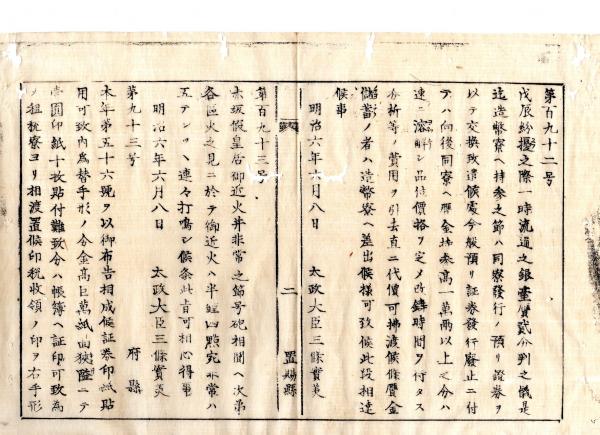 第百九十二号
戊辰紛擾之際一時流通之銀臺贋貳分判之儀是
迄造幣寮ヘ持参之節ハ同寮發行ノ預リ證券ヲ
以テ交換致遣候處今般預リ証券發行廃止ニ付
テハ向後同寮ヘ贋金地参高一萬兩以上之分ハ
速ニ溶解シ品位價格ヲ定メ改鋳時間ヲ待タス
分析等ノ費用ヲ引去直ニ代價可拂渡候條贋金
儲蓄ノ者ハ造幣寮ヘ差出候様可致候此段相達
候事
明治六年六月八日 太政大臣三條實美
二 置賜縣
第百九十三号
赤坂假皇居御近火并非常之節号砲相聞ヘ次第
各區火之見ニ於テ御近火ハ半鐘四點宛非常ハ
五テンツヽ連々打鳴シ候条此旨可相心得事
明治六年六月八日 太政大臣三條實美
第九十三号 府縣
本年第五十六號ヲ以御布告相成候証券印紙貼
用可致内為替手形ノ今金高巨萬紙面狭陸ニテ
壹圓印紙十枚貼付難致分ハ帳簿ヘ証印可致為
メ租税寮ヨリ相渡置候印税收領ノ印ヲ右手形